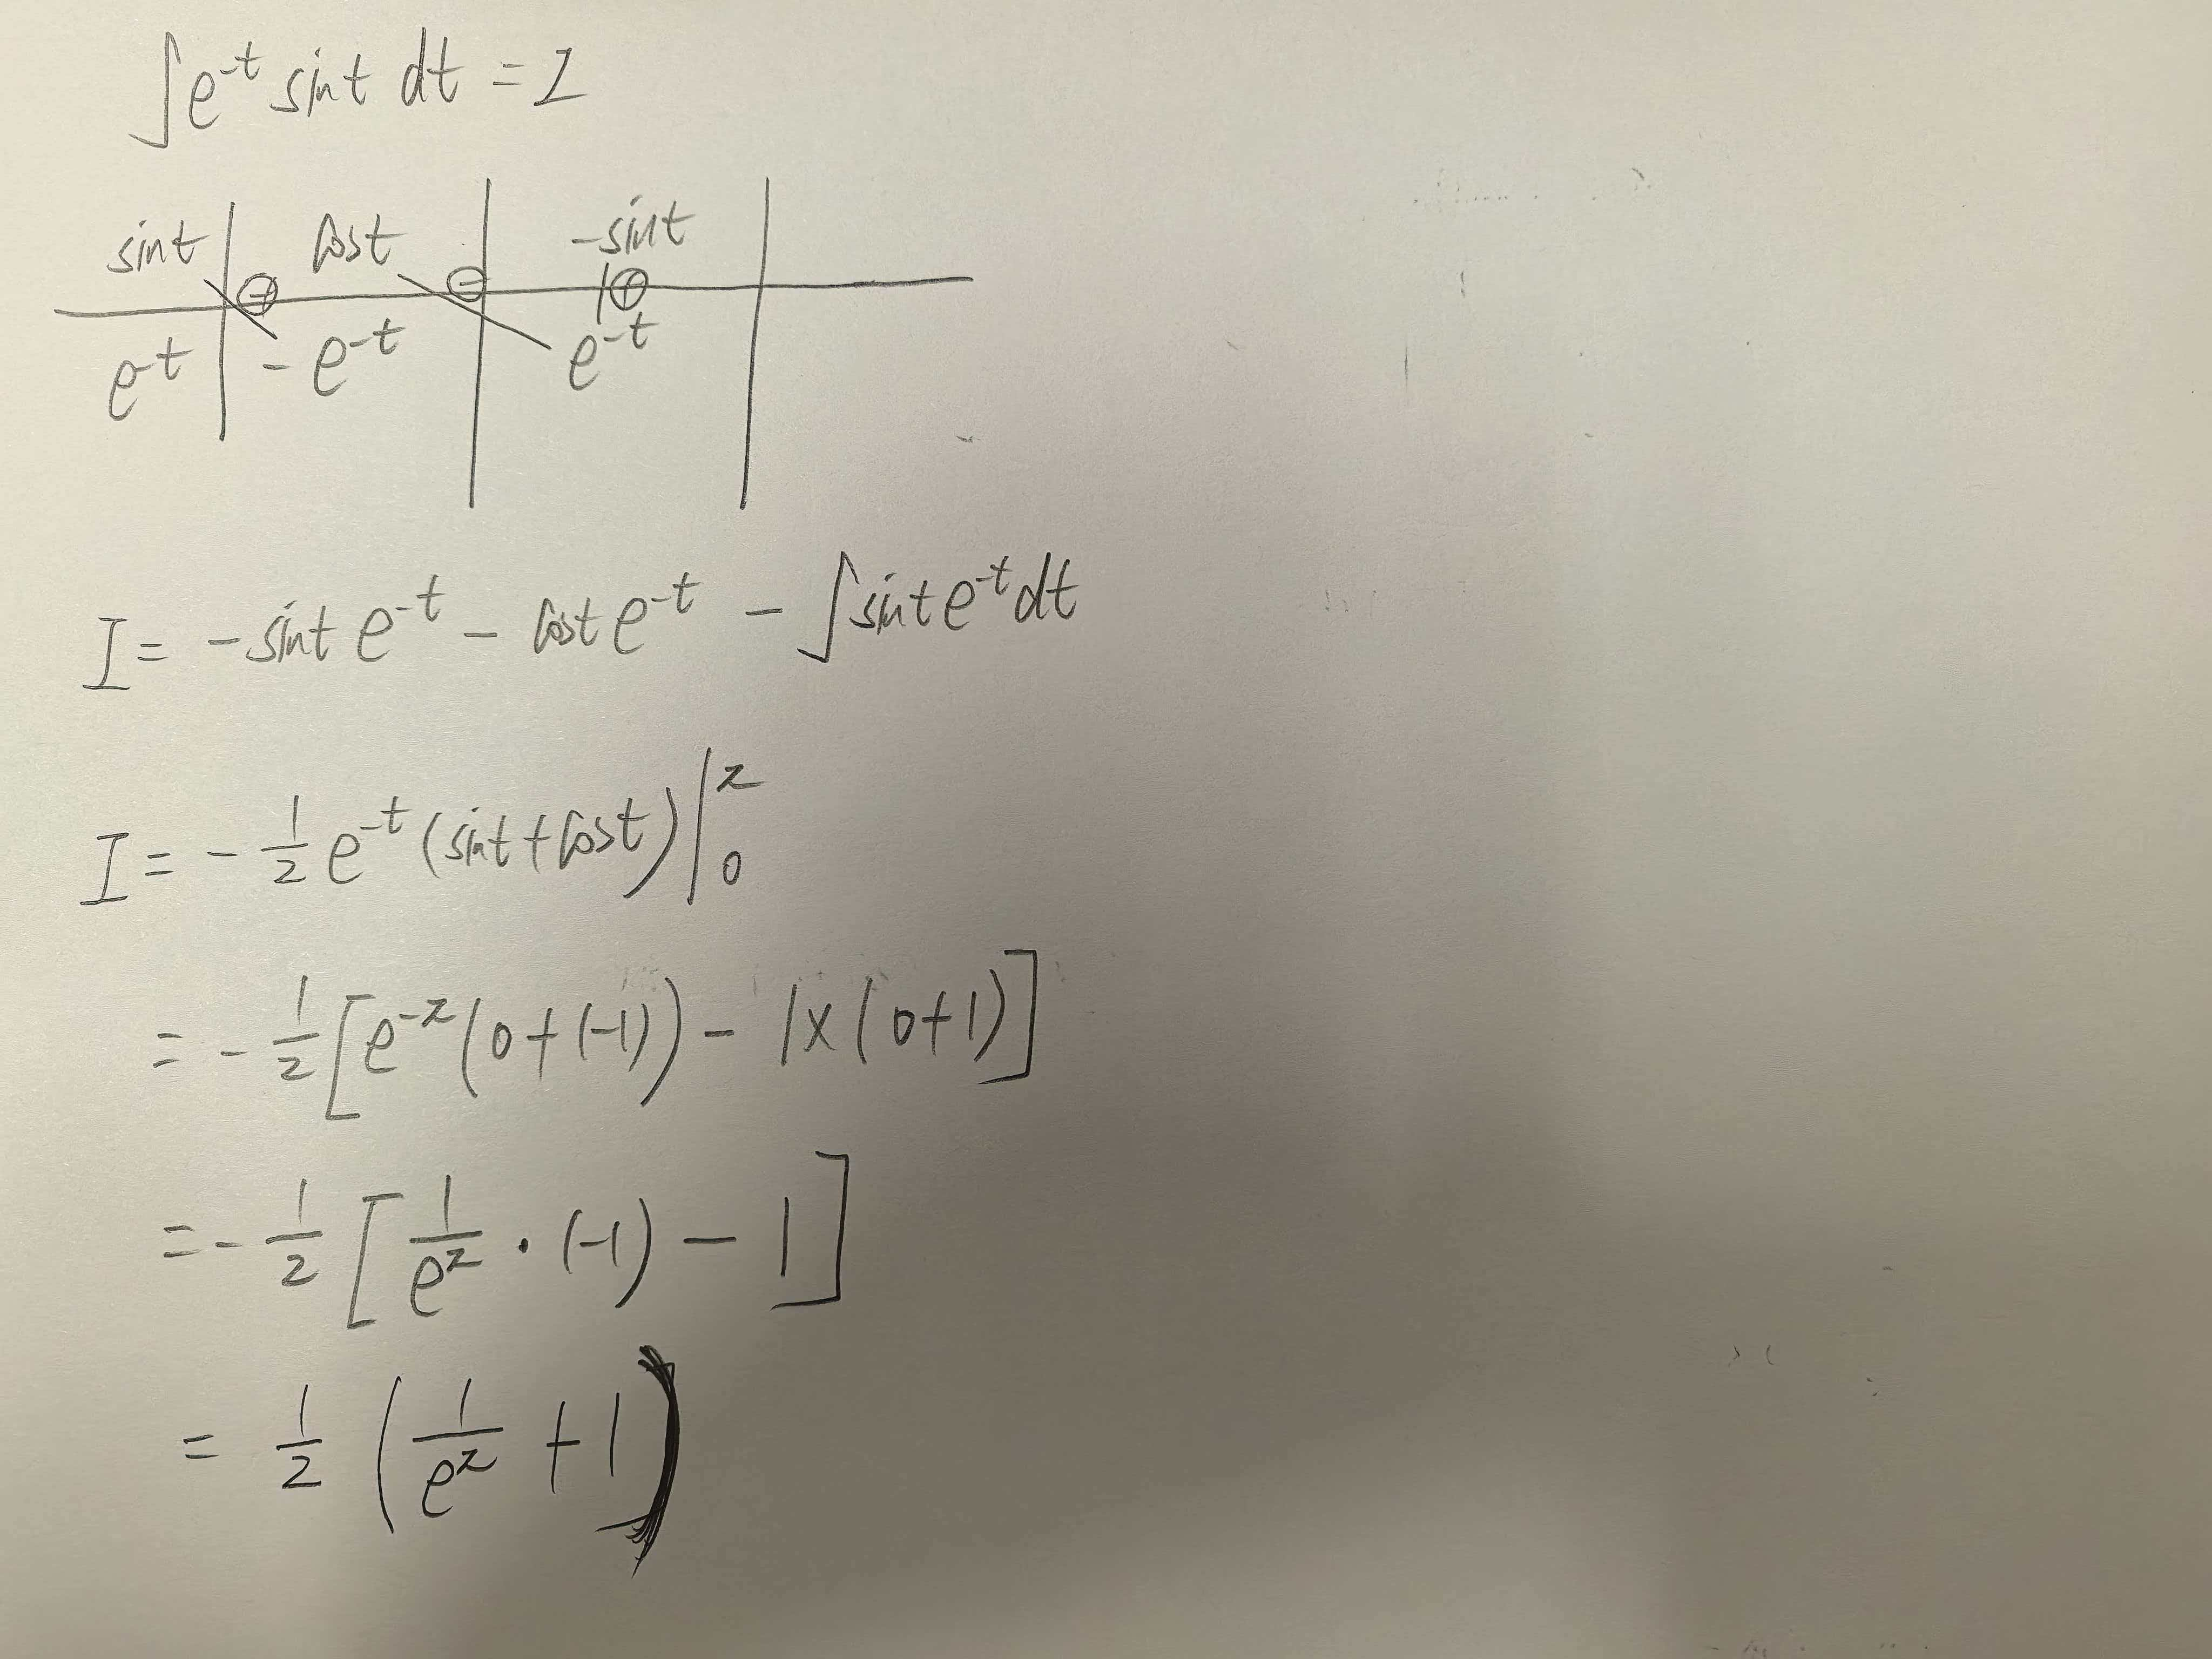 ∫e^{-t} sint dt = I
sint cost -sint
⊕ ⊖ ⊕
e^{-t} -e^{-t} e^{-t}
I = -sint e^{-t} - cost e^{-t} - ∫sint e^{-t} dt
I = -1/2 e^{-t} (sint + cost) |_0^π
= -1/2 [e^{-π} (0+(-1)) - 1×(0+1)]
= -1/2 [1/e^π · (-1) - 1]
= 1/2 (1/e^π + 1)